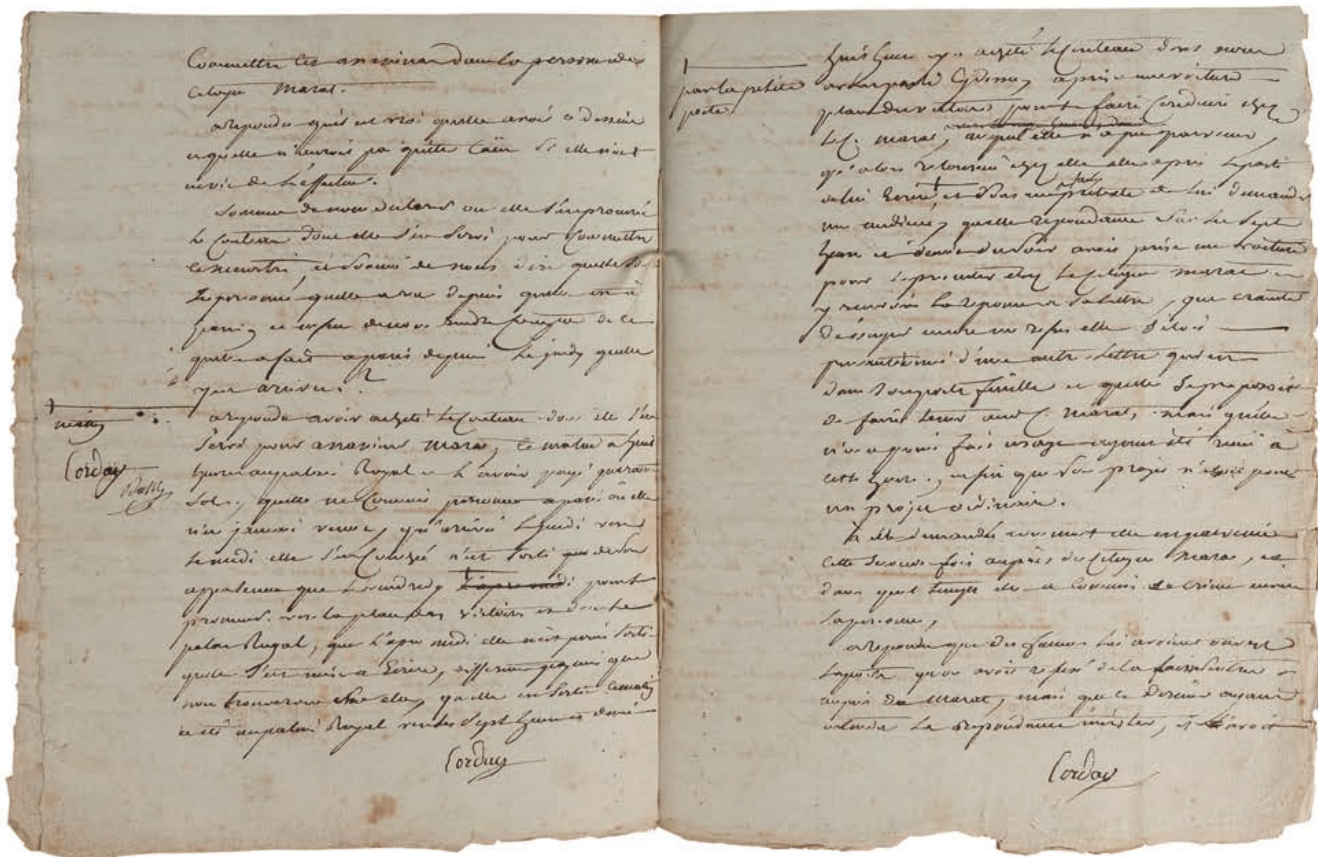 Commettre cet assassinat dans la personne du
Citoyen Marat.
a repondu qu'il est vrai qu'elle avoit ce dessein
et qu'elle n'auroit pas quitté Caën si elle n'eut
envie de l'effectuer.
Sommée de nous declarer ou elle s'est procuré
le Couteau dont elle s'est servi pour Commettre
ce meurtre, et sommé de nous dire quelle
personne qu'elle a vu depuis qu'elle est à
paris, et enfin de nous rendre Compte de ce
qu'elle a fait a paris depuis le jeudy qu'elle
y est arrivée ?
matin
Corday
a repondu avoir acheté le Couteau dont elle s'est
servi pour assassiner Marat, ce matin a huit
heures au palais Royal et l'avoir payé quarante
sols, qu'elle ne Connoit personne a paris où elle
n'est jamais venue, qu'arrivé le jeudi vers
le midi elle s'est Couchée n'est sorti que de son
appartement que le vendredy matin pour se
promener vers la place des victoires et dans le
palais Royal, que l'après midi elle n'est point sorti
qu'elle s'est mise a Ecrire, differens papiers que
nous trouverons sur elle, qu'elle est sortie ce matin
a été au palais Royal vers les sept heures et demie
Corday
huit heures, y a acheté le Couteau dont nous
avons parlé Cydessus, a pris une voiture
place des victoires pour se faire Conduire chez
le C. Marat, auquel elle n'a pu parvenir,
par la petite
poste
qu'alors retournée chez elle elle a pris le parti
de lui Ecrire, et sous un faux pretexte de lui demander
une audience, quelle repondante sur les sept
heures et demie du soir avoit prise une voiture
pour se presenter chez le Citoyen Marat et
y recevoir la reponse a sa lettre, que crainte
d'essuyer encore un refus elle s'etoit
precautionné d'une autre lettre qui est
dans son porte feuille et qu'elle se proposoit
de faire tenir au C. Marat, mais qu'elle
n'en a point fait usage ayant été reçu à
cette heure, enfin que son projet n'etoit point
un projet ordinaire.
à elle demandé comment elle est parvenue
cette seconde fois auprès du Citoyen Marat, et
dans quel temps elle a commis le crime envers
sa personne,
a repondu que des femmes lui avoient ouvert
la porte, qu'on avoit refusé de la faire entrer
auprès de Marat, mais que ce dernier ayant
entendu la repondante insister, il avoit
Corday